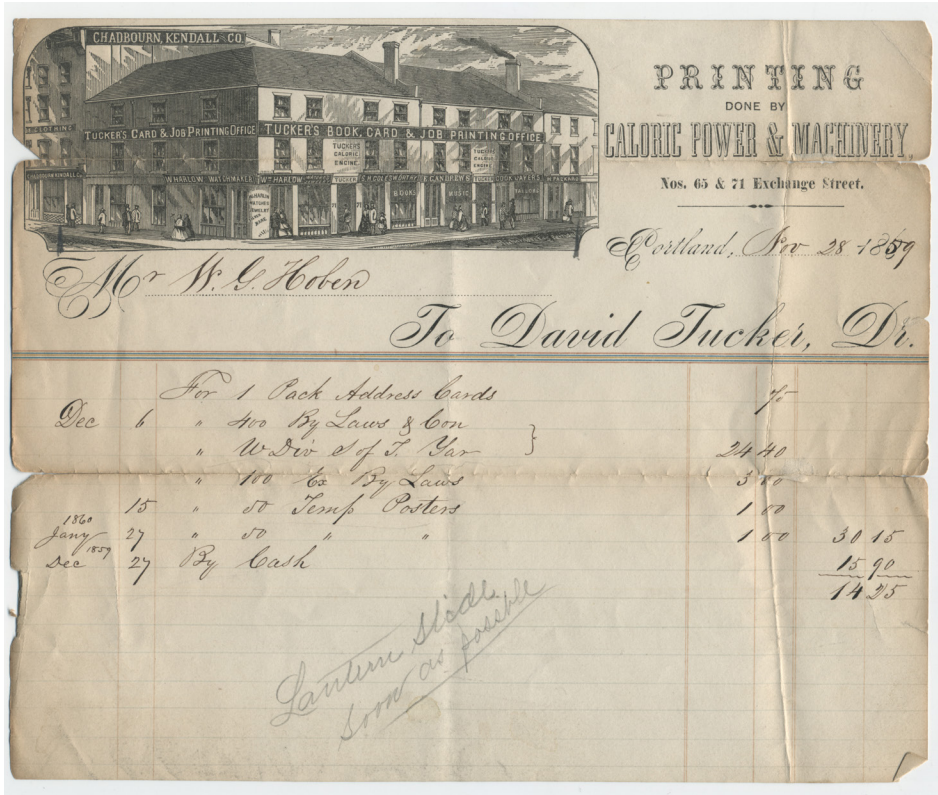 CHADBOURN, KENDALL & CO.
CLOTHING
TUCKER'S CARD & JOB PRINTING OFFICE
TUCKER'S BOOK, CARD & JOB PRINTING OFFICE
TUCKER'S CALORIC ENGINE
TUCKER'S CALORIC ENGINE
CHADBOURN KENDALL CO.
W HARLOW WATCHMAKER
WM HARLOW
TUCKER
S.H. COLESWORTHY
E.C. ANDREWS
BOOKS
MUSIC
TAILORS
71
PRINTING
DONE BY
CALORIC POWER & MACHINERY,
Nos. 65 & 71 Exchange Street.
Portland, Nov 28 1859
Mr W. G. Hoben
To David Tucker, Dr.
For 1 Pack Address Cards 75
Dec 6 " 400 By Laws & Con
" W Div S of T. Yar } 24 40
" 100 Ex By Laws 3 00
15 " 50 Temp Posters 1 00
1860
Jany 27 " 50 " " 1 00 30 15
1859
Dec 27 By Cash 15 90
14 25
Lantern Slide
soon as possible